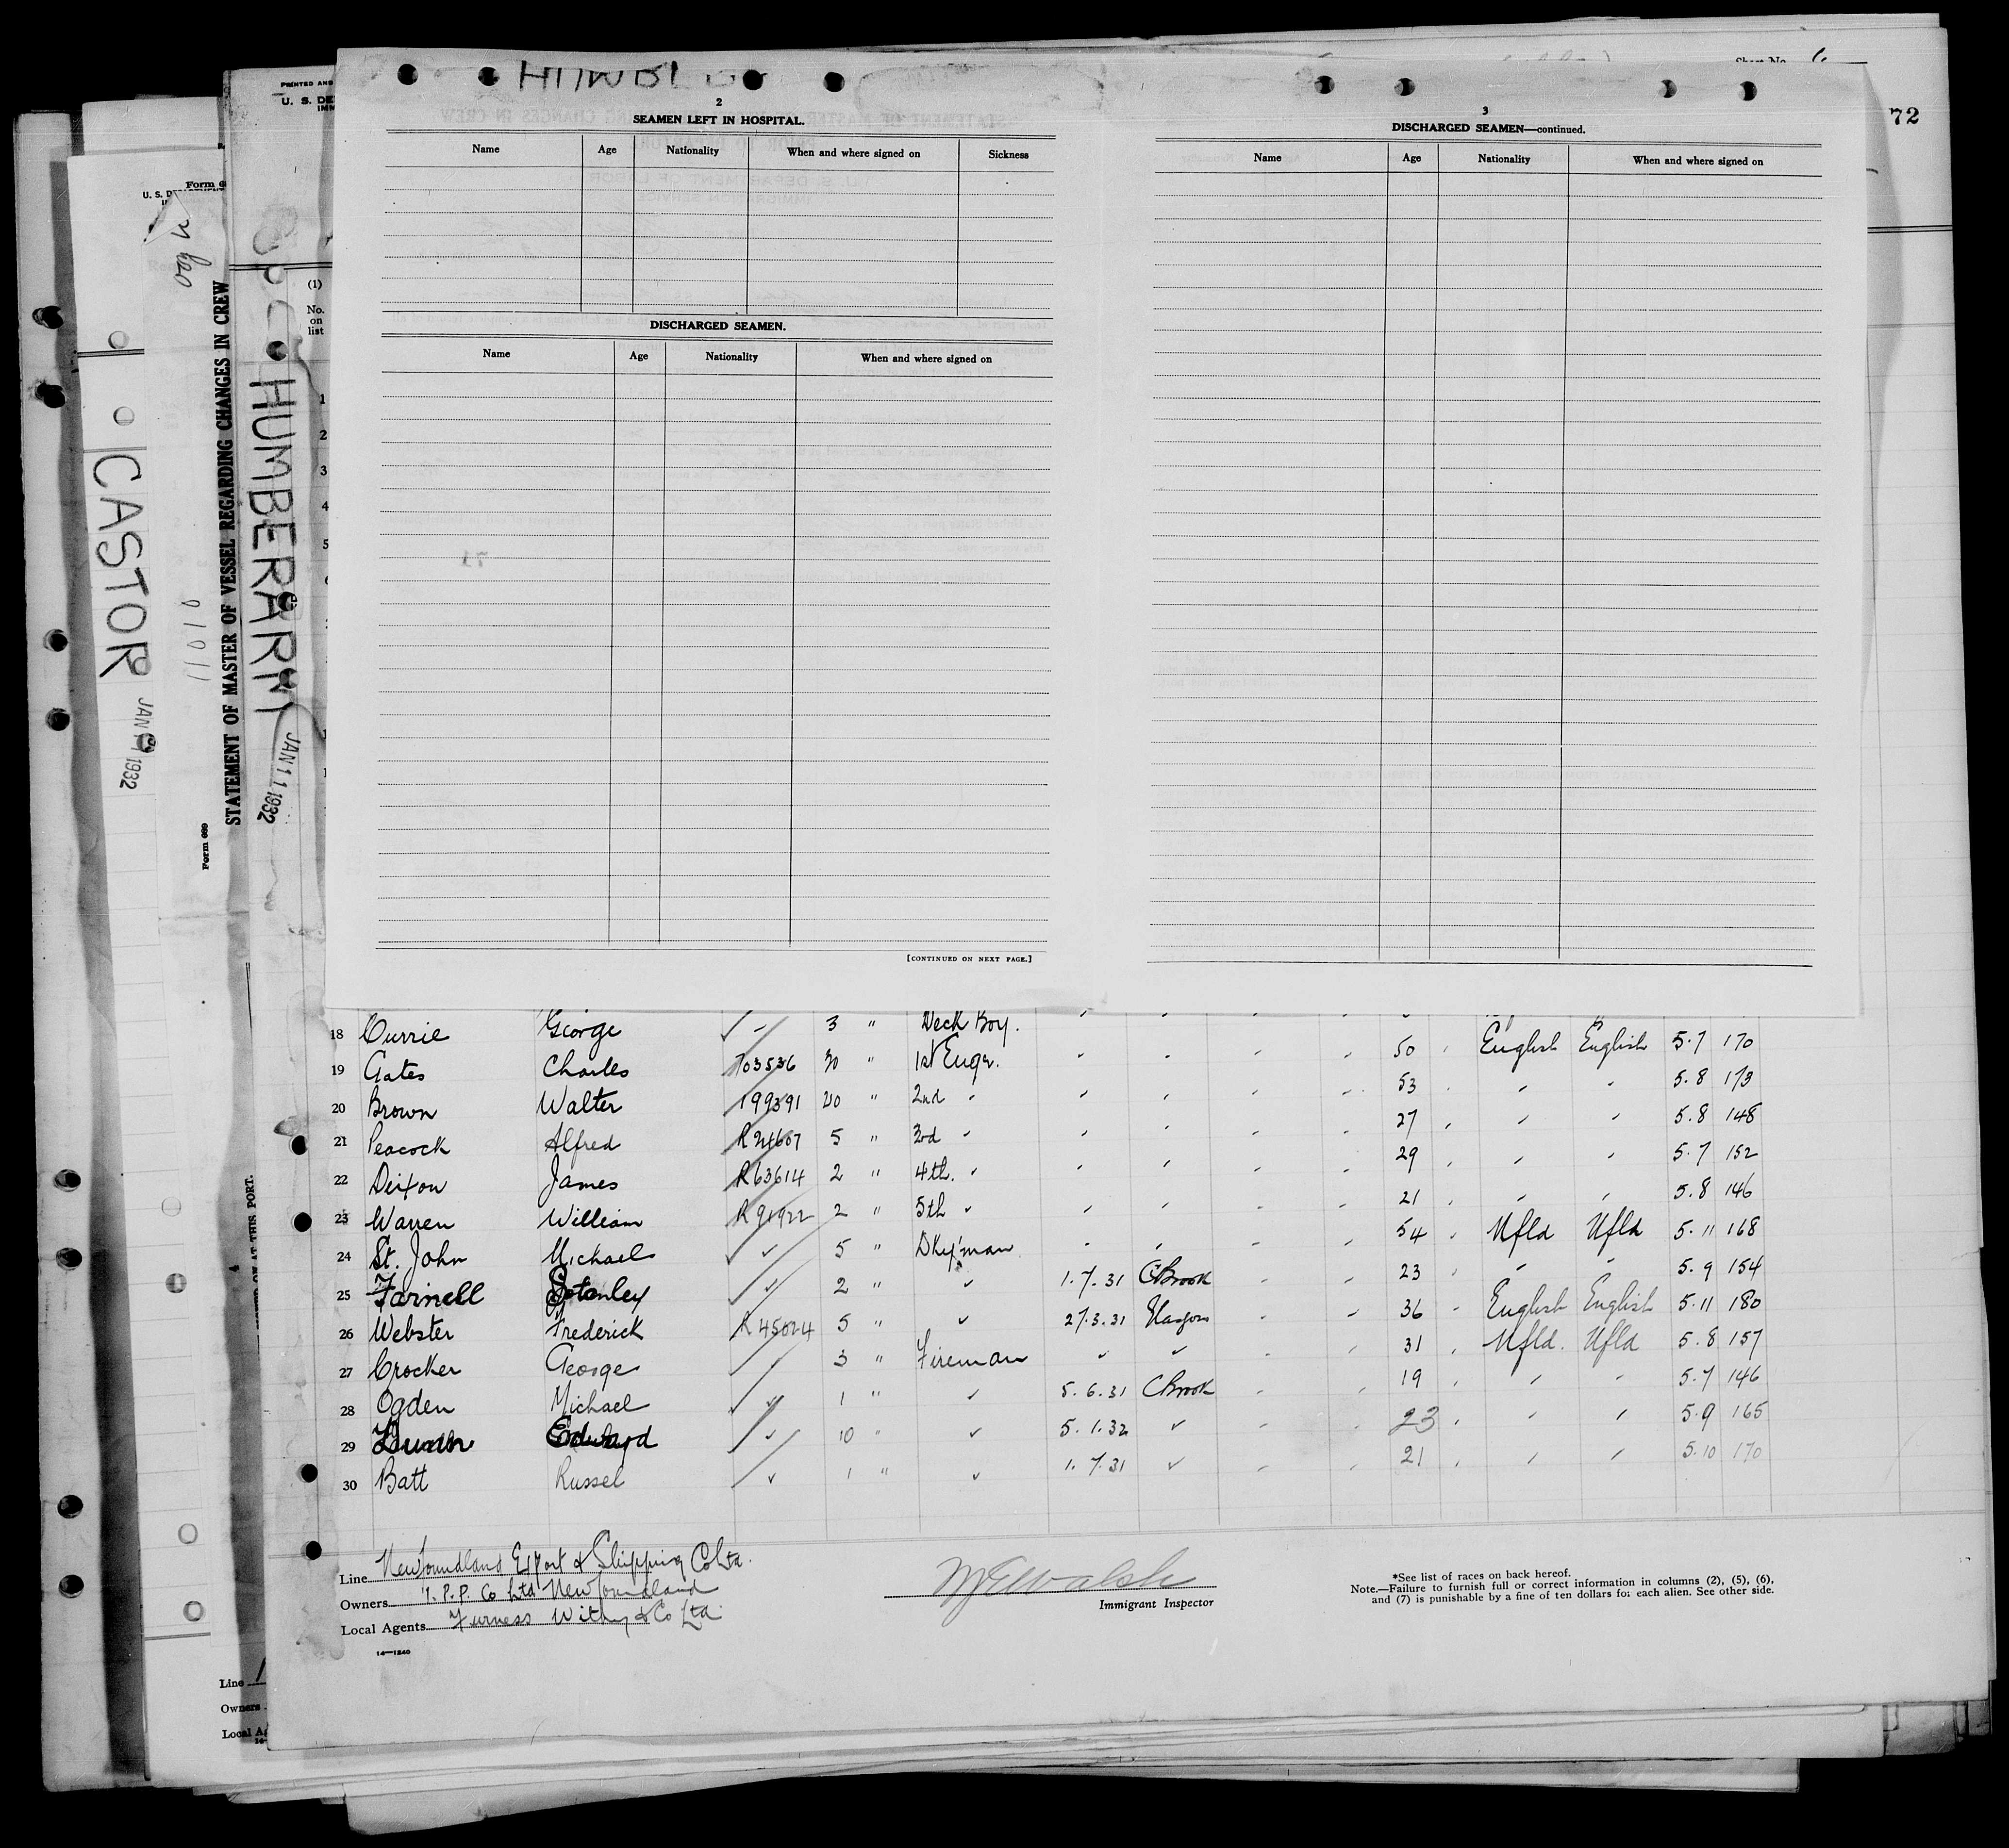 72
2
SEAMEN LEFT IN HOSPITAL.
Name Age Nationality When and where signed on Sickness
DISCHARGED SEAMEN.
Name Age Nationality When and where signed on
[CONTINUED ON NEXT PAGE.]
3
DISCHARGED SEAMEN—continued.
Name Age Nationality When and where signed on
CASTOR
JAN 1932
Form 689
STATEMENT OF MASTER OF VESSEL REGARDING CHANGES IN CREW
HUMBERARM
JAN 11 1932
(1)
No.
on
list
1
2
3
4
5
18 Currie George 3 " Deck Boy.
19 Gates Charles 703536 30 " 1st Engr. 50 English English 5.7 170
20 Brown Walter 199391 20 " 2nd " 53 " " 5.8 173
21 Peacock Alfred R24607 5 " 3rd " 27 " " 5.8 148
22 Deixon James R63614 2 " 4th. " 29 " " 5.7 152
23 Warren William R91922 2 " 5th " 21 " " 5.8 146
24 St. John Michael ✓ 5 " Dkyman 54 Nfld Nfld 5.11 168
25 Farnell Stanley ✓ 2 " ✓ 1.7.31 CBrook 23 " " 5.9 154
26 Webster Frederick R45024 5 " ✓ 27.3.31 36 English English 5.11 180
27 Crocker George 3 " Fireman ✓ ✓ 31 Nfld. Nfld 5.8 157
28 Ogden Michael ✓ 1 " ✓ 5.6.31 CBrook 19 " " 5.7 146
29 Edward ✓ 10 " ✓ 5.1.32 ✓ 23 " " 5.9 165
30 Batt Russel ✓ 1 " ✓ 1.7.31 ✓ 21 " " 5.10 170
Line Newfoundland Export & Shipping Co Ltd.
Owners I.P.P. Co Ltd Newfoundland
Local Agents Furness Withy & Co Ltd
14—1240
M E Walsh
Immigrant Inspector
*See list of races on back hereof.
Note.—Failure to furnish full or correct information in columns (2), (5), (6),
and (7) is punishable by a fine of ten dollars for each alien. See other side.
Line
Owners